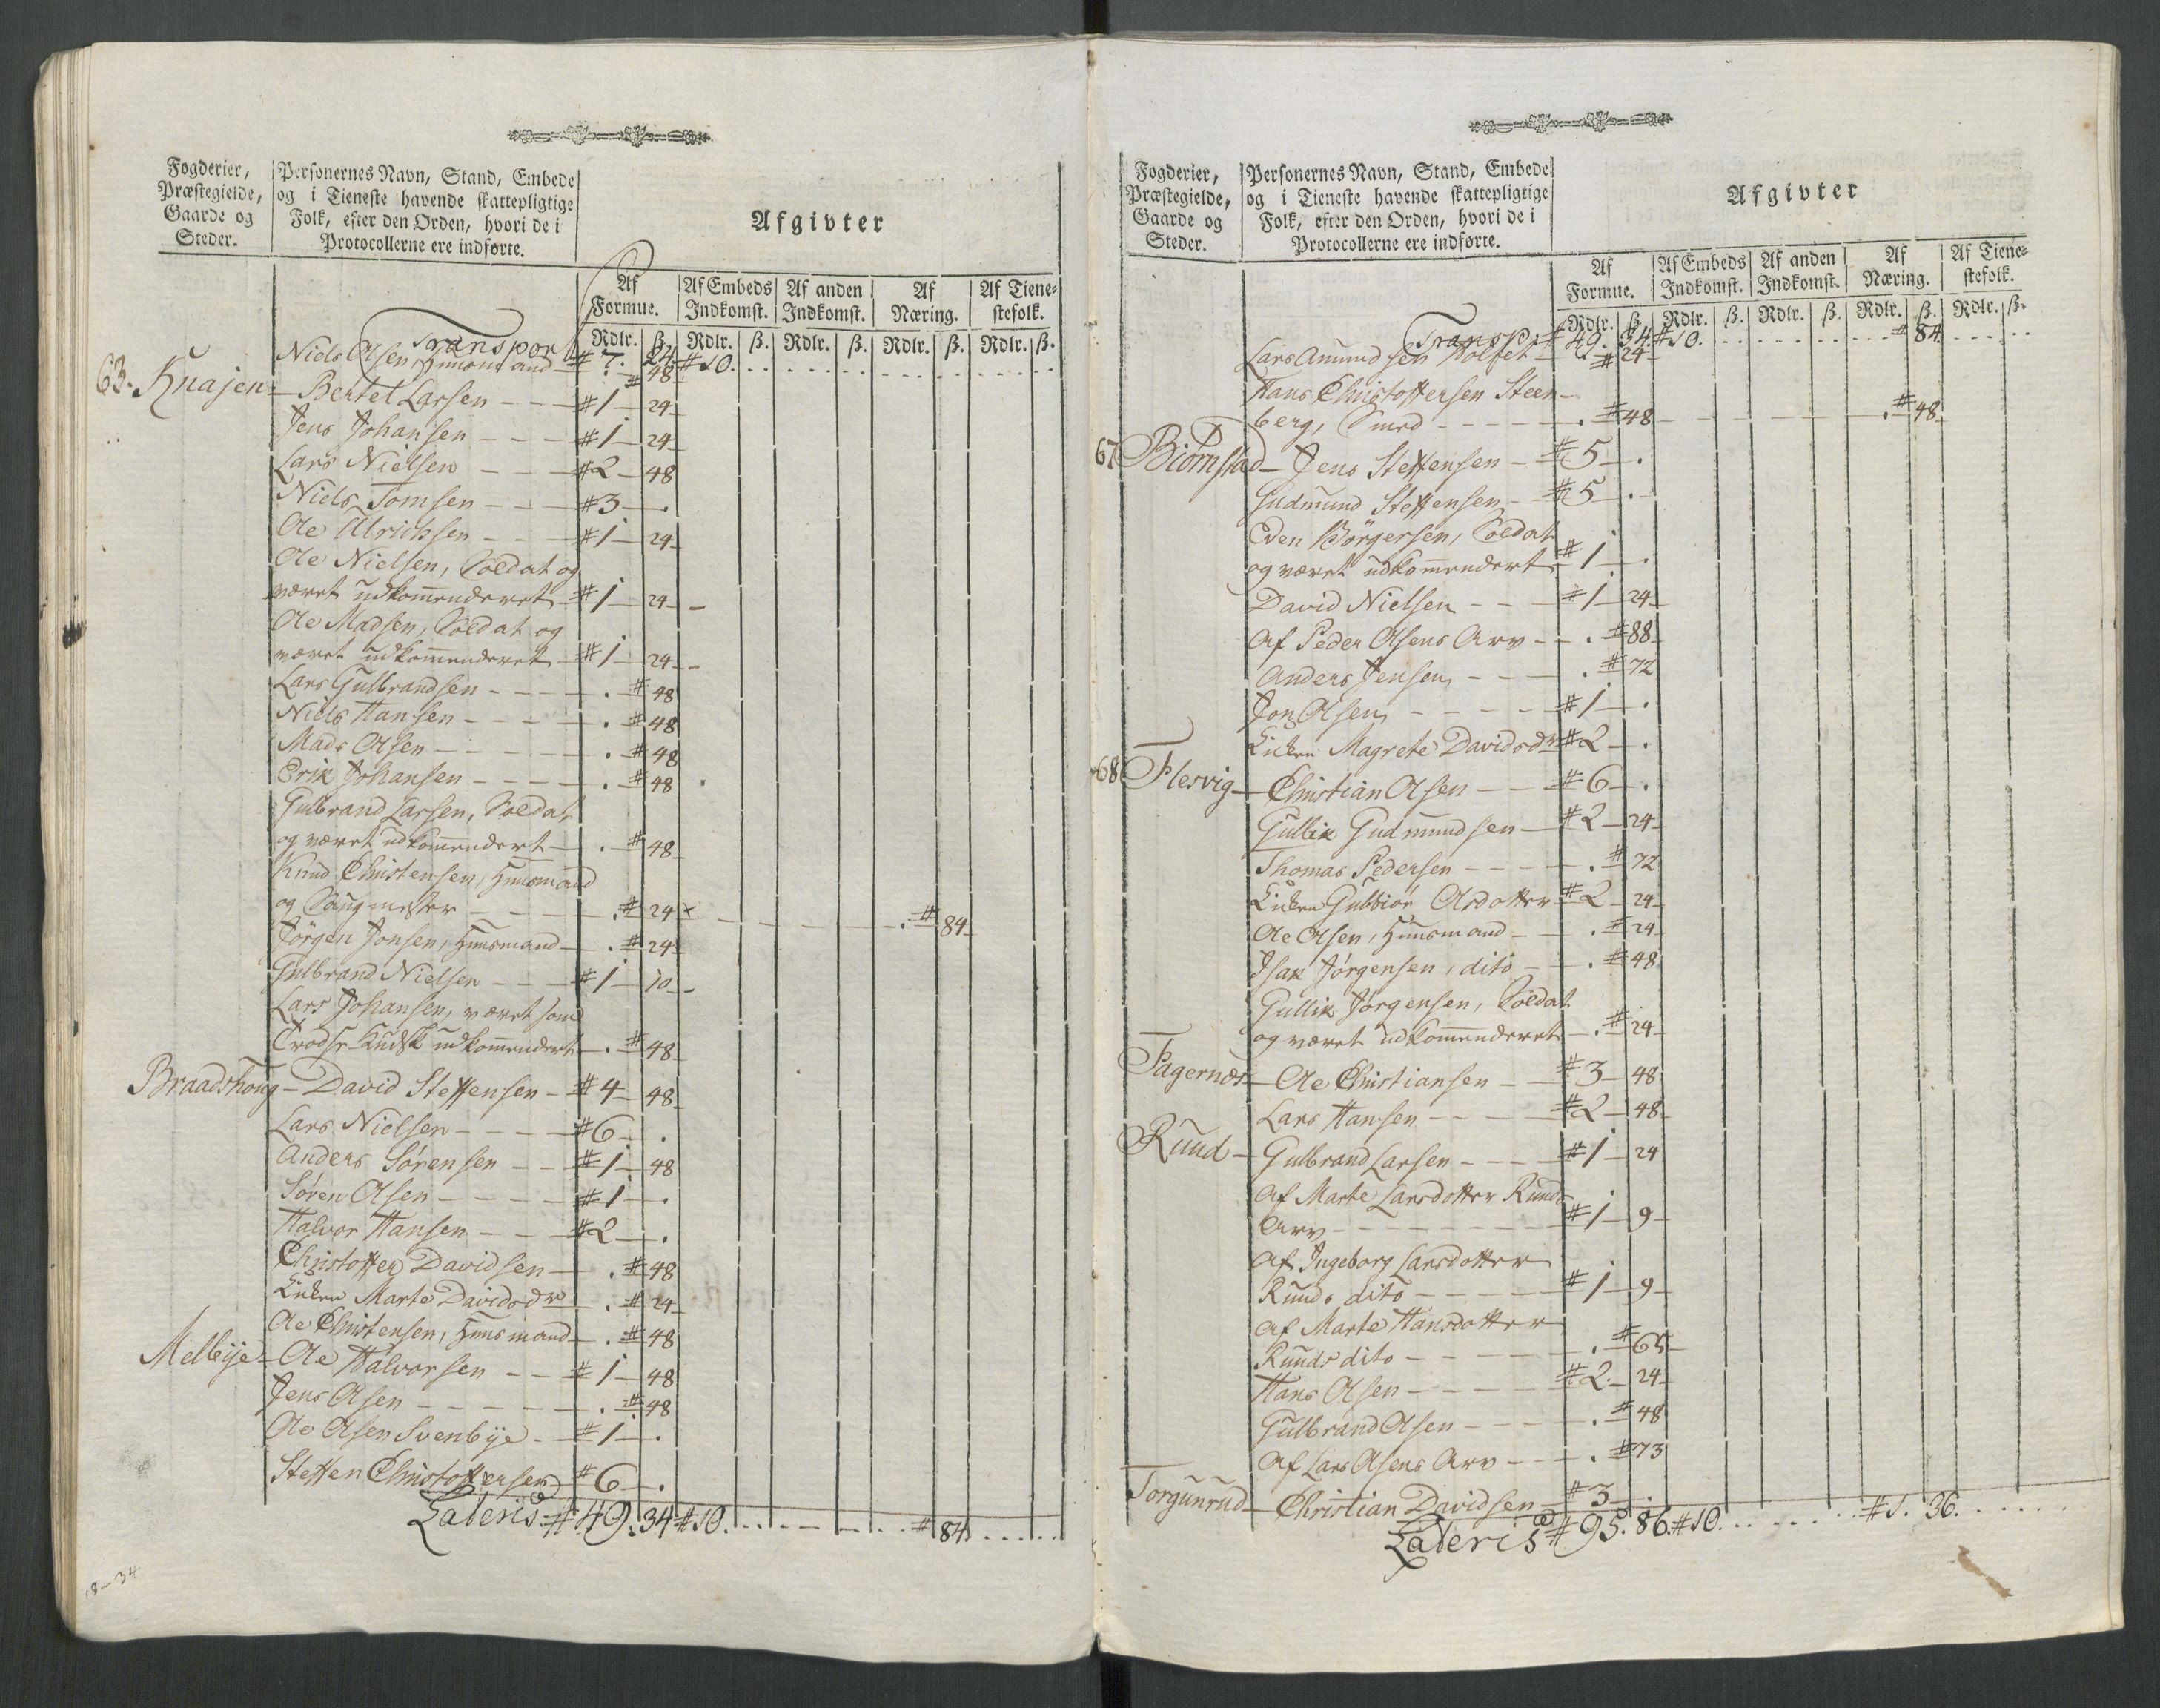 Fogderier, Præstegielde, Gaarde og Steder.
Personernes Navn, Stand, Embede og i Tieneste havende skattepligtige Folk, efter den Orden, hvori de i Protocollerne ere indførte.
Afgivter
Af Formue. Af Embeds Indkomst. Af anden Indkomst. Af Næring. Af Tienestefolk.
Rdlr. ß. Rdlr. ß. Rdlr. ß. Rdlr. ß. Rdlr. ß.
Transport # 7. 24 # 10.
Niels Olsen Huusmand # 48
63. Knajen - Bertel Larsen # 1 24
Jens Johansen # 1 24
Lars Nielsen # 2 48
Niels Tomsen # 3 .
Ole Ulrichsen # 1 24
Ole Nielsen, Soldat og
været udkom̄enderet # 1 24
Ole Madsen, Soldat og
været udkom̄enderet # 1 24
Lars Gulbrandsen . # 48
Niels Hansen . # 48
Mads Olsen . # 48
Erik Johansen . # 48
Gulbrand Larsen, Soldat
og været udkom̄endert . # 48
Knud Christensen, Huusmand
og Saugmester . # 24 . # 84
Jörgen Jonsen, Huusmand . # 24
Gulbrand Nielsen # 1 10
Lars Johansen, været som
Kudsk udkom̄endert . # 48
Braadshoug - David Steffensen # 4 48
Lars Nielsen # 6 .
Anders Sörensen # 1 48
Sören Olsen # 1 .
Halvor Hansen # 2 .
Christoffer Davidsen . # 48
Enken Marte Davidsdr . # 24
Ole Christensen, Huusmand . # 48
Melbije - Ole Halvorsen # 1 48
Jens Olsen . # 48
Ole Olsen Svenbije # 1 .
Steffen Christoffersen # 6 .
Lateris # 49. 34 # 10. # 84
18-34
Fogderier, Præstegielde, Gaarde og Steder.
Personernes Navn, Stand, Embede og i Tieneste havende skattepligtige Folk, efter den Orden, hvori de i Protocollerne ere indførte.
Afgivter
Af Formue. Af Embeds Indkomst. Af anden Indkomst. Af Næring. Af Tienestefolk.
Rdlr. ß. Rdlr. ß. Rdlr. ß. Rdlr. ß. Rdlr. ß.
Transp: # 49. 34. # 10. # 84.
Lars Amundsen # 24
Hans Christoffersen Steen-
berg, Smed . # 48 . # 48
67 Biörnstad - Jens Steffensen # 5 .
Gudmund Steffensen # 5 .
Eden Börgersen, Soldat
og været udkom̄endert # 1 .
David Nielsen # 1 24
Af Peder Olsens Arv . # 88
Anders Jensen . # 72
Jon Olsen # 1 .
Enken Magrete Davidsdr # 2 .
68 Flesvig - Christian Olsen # 6 .
Gullik Gudmundsen # 2 24
Thomas Pedersen . # 72
Enken Gubbiör Olsdotter # 2 24
Ole Olsen, Huusmand . # 24
Isak Jörgensen, dito . # 48
Gullik Jörgensen, Soldat
og været udkom̄enderet . # 24
Fagernæs - Ole Christiansen # 3 48
Lars Hansen # 2 48
Ruud - Gulbrand Larsen # 1 24
Af Marte Larsdotter Ruuds
Arv # 1 9
Af Ingeborg Larsdotter
Ruuds dito # 1 9
Af Marte Hansdotter
Ruuds dito . # 65
Hans Olsen # 2 24
Gulbrand Olsen . # 48
Af Lars Olsens Arv . # 73
Torgunrud - Christian Davidsen # 3 .
Lateris # 95. 86. # 10. # 1. 36.